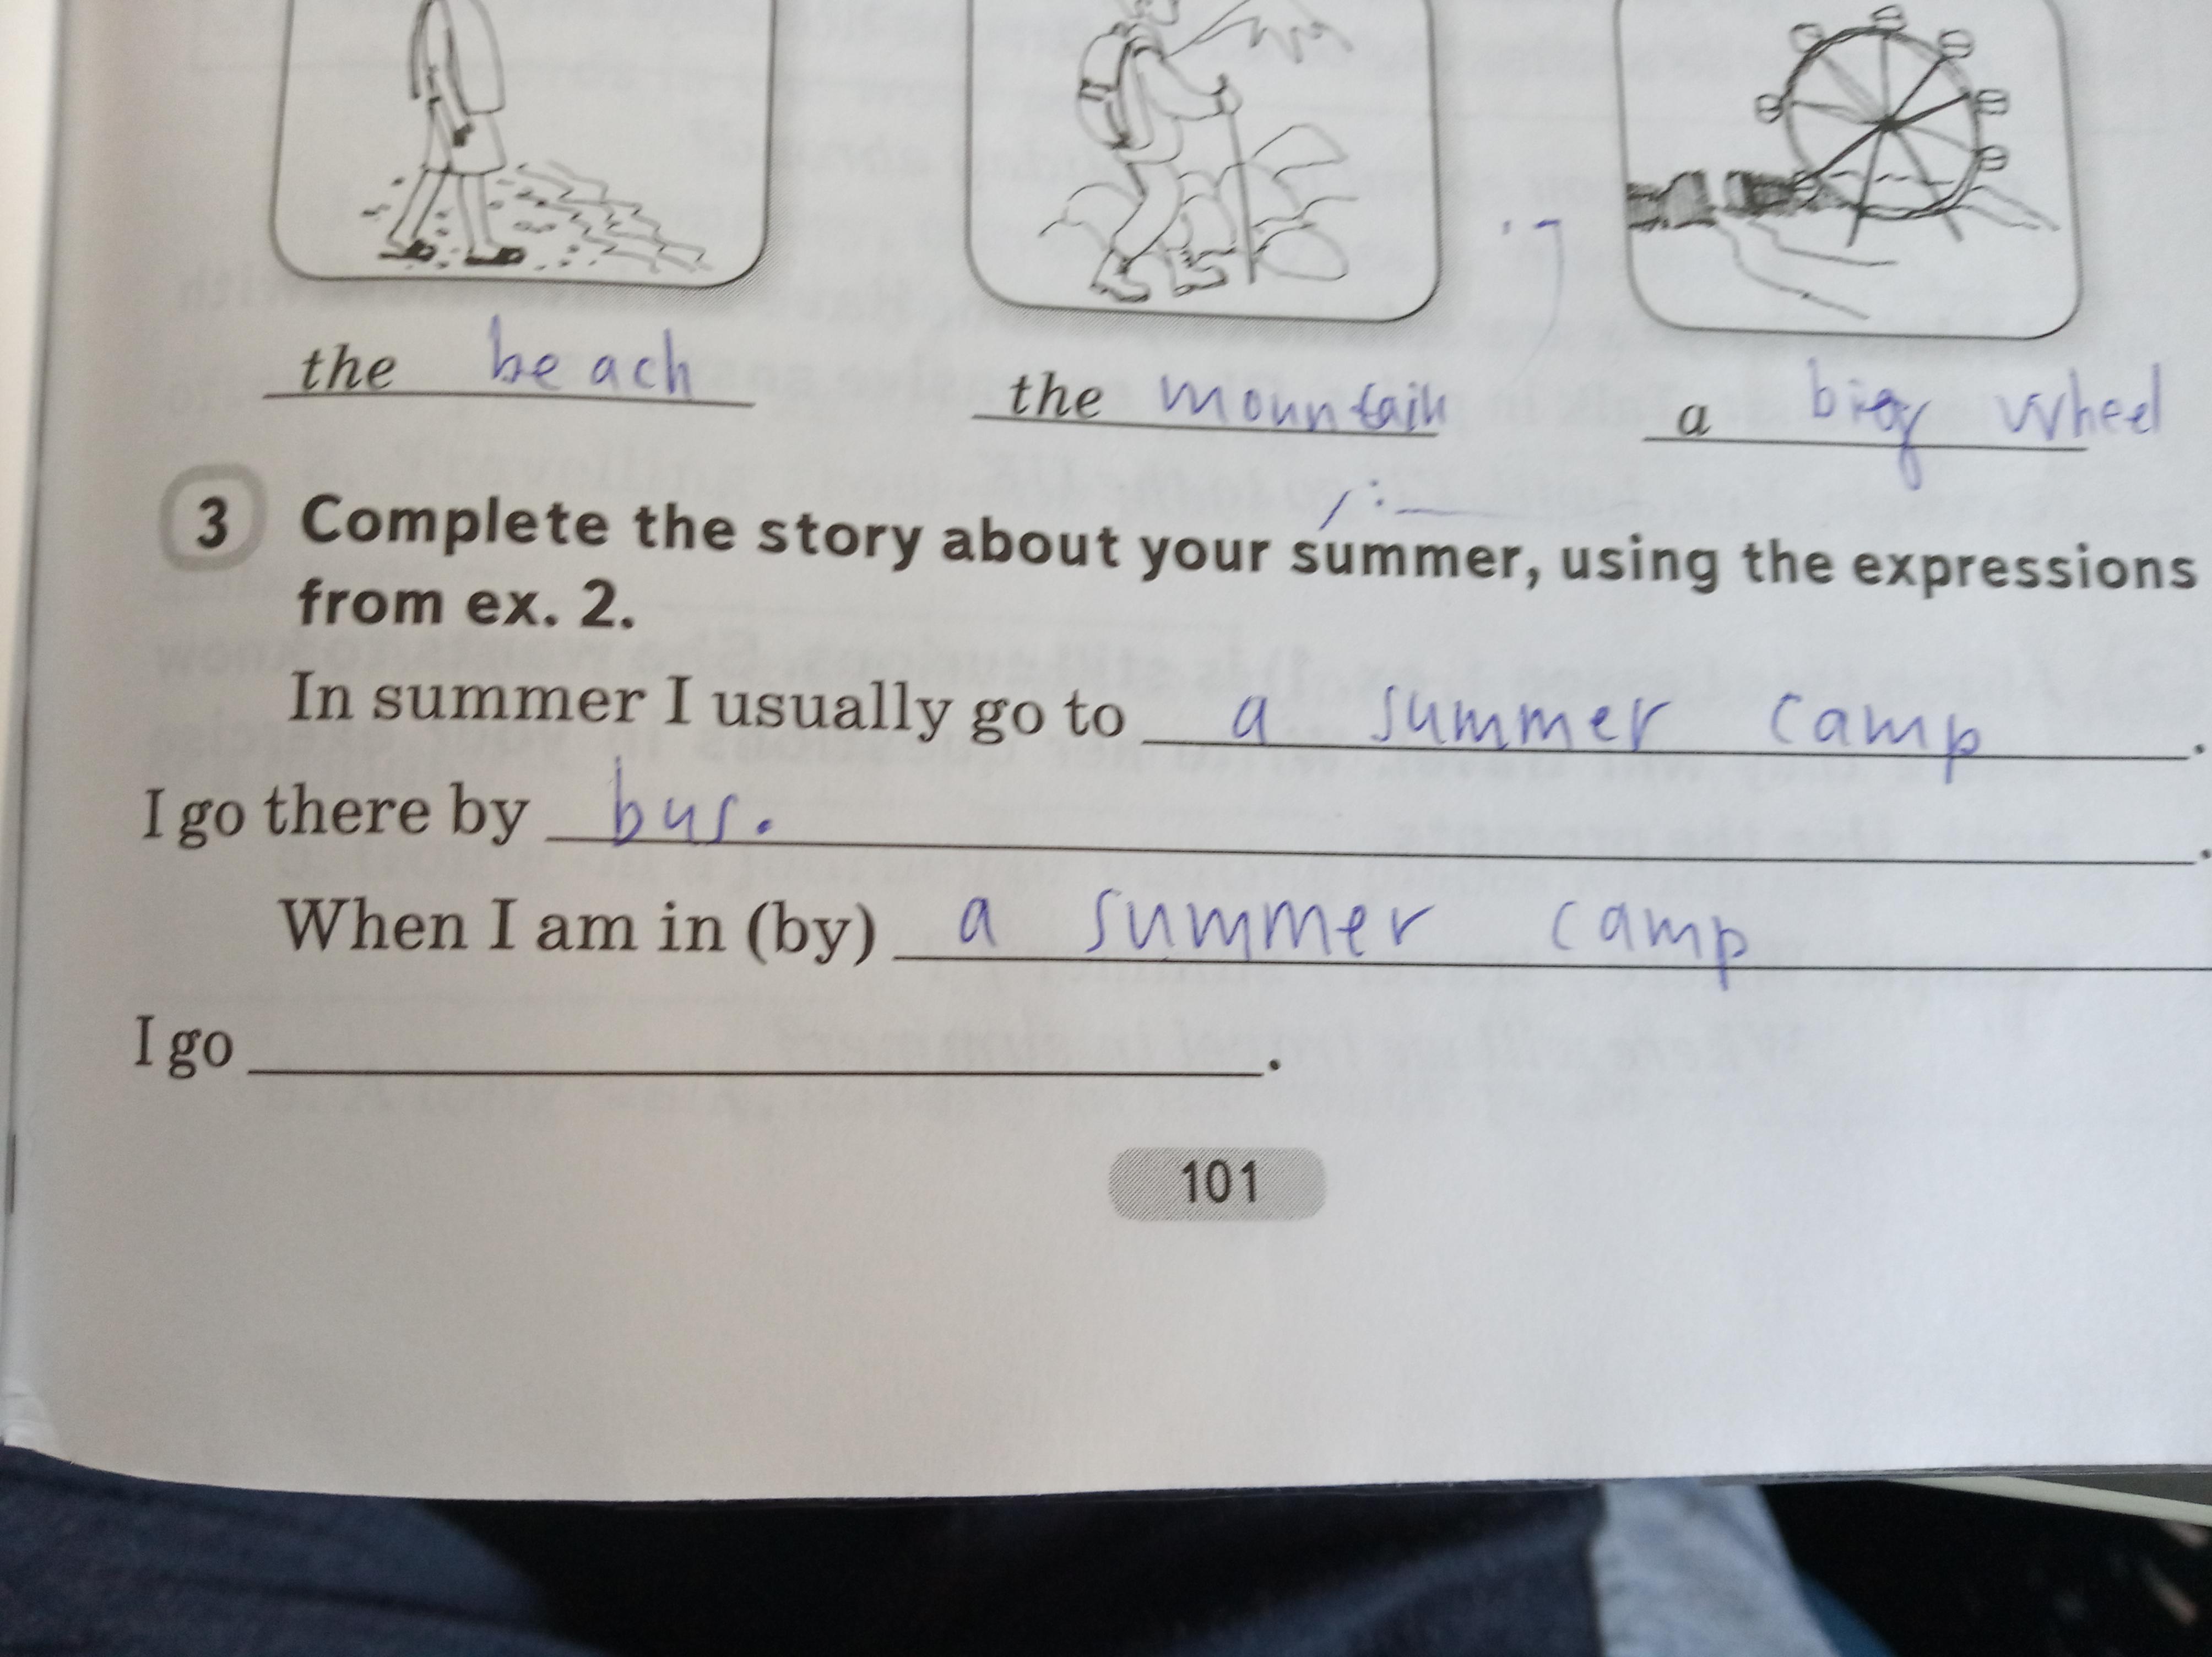 the beach the mountain a big wheel
3 Complete the story about your summer, using the expressions
from ex. 2.
In summer I usually go to a summer camp.
I go there by bus. .
When I am in (by) a summer camp
I go .
101